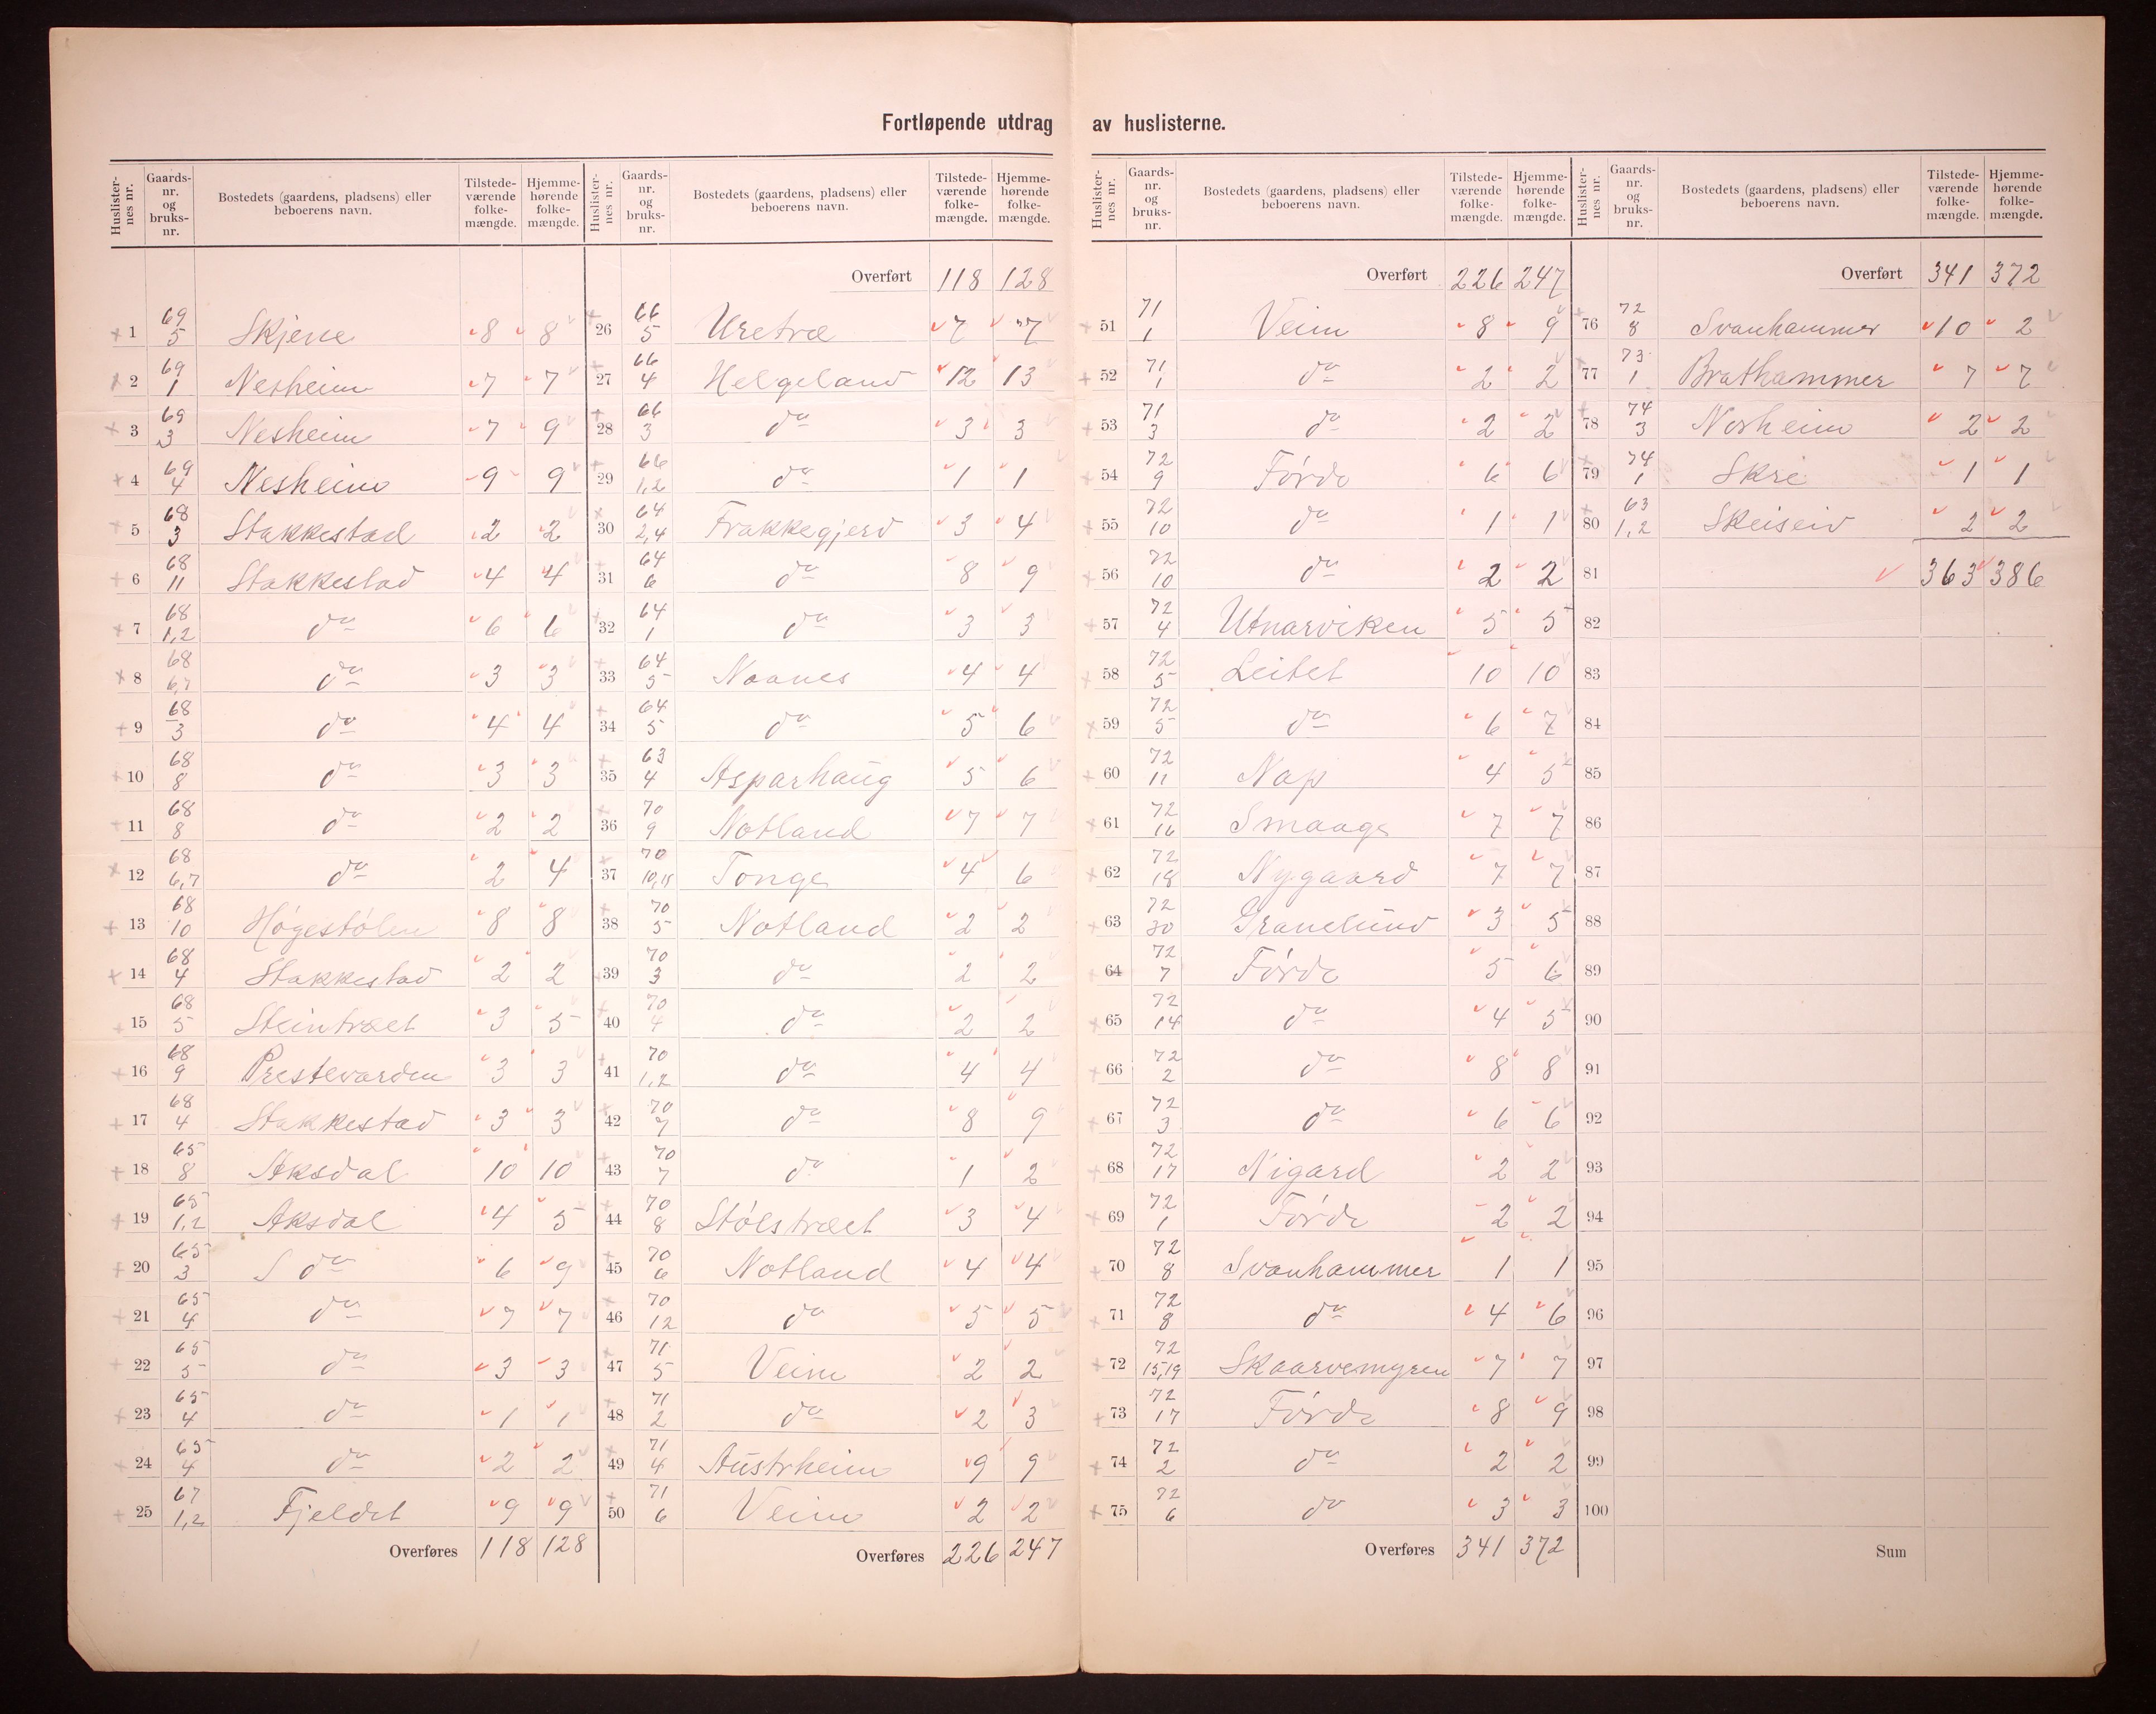 Fortløpende utdrag av huslisterne.
Huslister-nes nr. | Gaards-nr. og bruks-nr. | Bostedets (gaardens, pladsens) eller beboerens navn. | Tilstede-værende folke-mængde. | Hjemme-hørende folke-mængde.
1 | 69 5 | Skjeve | 8 | 8
2 | 69 1 | Nesheim | 7 | 7
3 | 69 3 | Nesheim | 7 | 9
4 | 69 4 | Nesheim | 9 | 9
5 | 68 3 | Stakkestad | 2 | 2
6 | 68 11 | Stakkestad | 4 | 4
7 | 68 1,2 | do | 6 | 6
8 | 68 6,7 | do | 3 | 3
9 | 68 3 | do | 4 | 4
10 | 68 8 | do | 3 | 3
11 | 68 8 | do | 2 | 2
12 | 68 6,7 | do | 2 | 4
13 | 68 10 | Høgestølen | 8 | 8
14 | 68 4 | Stakkestad | 2 | 2
15 | 68 5 | Steintræet | 3 | 5
16 | 68 9 | Prestevarden | 3 | 3
17 | 68 4 | Stakkestad | 3 | 3
18 | 65 8 | Aksdal | 10 | 10
19 | 65 1,2 | Aksdal | 4 | 5
20 | 65 3 | do | 6 | 9
21 | 65 4 | do | 7 | 7
22 | 65 5 | do | 3 | 3
23 | 65 4 | do | 1 | 1
24 | 65 4 | do | 2 | 2
25 | 67 1,2 | Fjeldet | 9 | 9
Overføres | 118 | 128
Huslister-nes nr. | Gaards-nr. og bruks-nr. | Bostedets (gaardens, pladsens) eller beboerens navn. | Tilstede-værende folke-mængde. | Hjemme-hørende folke-mængde.
Overført | 118 | 128
26 | 66 5 | Uretræ | 7 | 7
27 | 66 4 | Helgeland | 12 | 13
28 | 66 3 | do | 3 | 3
29 | 66 1,2 | do | 1 | 1
30 | 64 2,4 | Frakkegjerd | 3 | 4
31 | 64 6 | do | 8 | 9
32 | 64 1 | do | 3 | 3
33 | 64 5 | Naanes | 4 | 4
34 | 64 5 | do | 5 | 6
35 | 63 4 | Asparhaug | 5 | 6
36 | 70 9 | Notland | 7 | 7
37 | 70 | Tonge | 4 | 6
38 | 70 5 | Notland | 2 | 2
39 | 70 3 | do | 2 | 2
40 | 70 4 | do | 2 | 2
41 | 70 1,2 | do | 4 | 4
42 | 70 7 | do | 8 | 9
43 | 70 7 | do | 1 | 2
44 | 70 8 | Stølstræet | 3 | 4
45 | 70 6 | Notland | 4 | 4
46 | 70 12 | do | 5 | 5
47 | 71 5 | Veim | 2 | 2
48 | 71 2 | do | 2 | 3
49 | 71 4 | Austrheim | 9 | 9
50 | 71 6 | Veim | 2 | 2
Overføres | 226 | 247
Huslister-nes nr. | Gaards-nr. og bruks-nr. | Bostedets (gaardens, pladsens) eller beboerens navn. | Tilstede-værende folke-mængde. | Hjemme-hørende folke-mængde.
Overført | 226 | 247
51 | 71 1 | Veim | 8 | 9
52 | 71 1 | do | 2 | 2
53 | 71 3 | do | 2 | 2
54 | 72 9 | Førde | 6 | 6
55 | 72 10 | do | 1 | 1
56 | 72 10 | do | 2 | 2
57 | 72 4 | Utnarviken | 5 | 5
58 | 72 5 | Leitet | 10 | 10
59 | 72 5 | do | 6 | 7
60 | 72 11 | Nap | 4 | 5
61 | 72 16 | Smaage | 7 | 7
62 | 72 18 | Nygaard | 7 | 7
63 | 72 20 | Granelund | 3 | 5
64 | 72 7 | Førde | 5 | 6
65 | 72 14 | do | 4 | 5
66 | 72 2 | do | 8 | 8
67 | 72 3 | do | 6 | 6
68 | 72 17 | Nigard | 2 | 2
69 | 72 1 | Førde | 2 | 2
70 | 72 8 | Svanhammer | 1 | 1
71 | 72 8 | do | 4 | 6
72 | 72 15,19 | Skaarvemyren | 7 | 7
73 | 72 17 | Førde | 8 | 9
74 | 72 2 | do | 2 | 2
75 | 72 6 | do | 3 | 3
Overføres | 341 | 372
Huslister-nes nr. | Gaards-nr. og bruks-nr. | Bostedets (gaardens, pladsens) eller beboerens navn. | Tilstede-værende folke-mængde. | Hjemme-hørende folke-mængde.
Overført | 341 | 372
76 | 72 8 | Svanhammer | 10 | 2
77 | 73 1 | Brathammer | 7 | 7
78 | 74 3 | Norheim | 2 | 2
79 | 74 1 | Skre | 1 | 1
80 | 63 1,2 | Skeiseid | 2 | 2
81 | 363 | 386
82
83
84
85
86
87
88
89
90
91
92
93
94
95
96
97
98
99
100
Sum